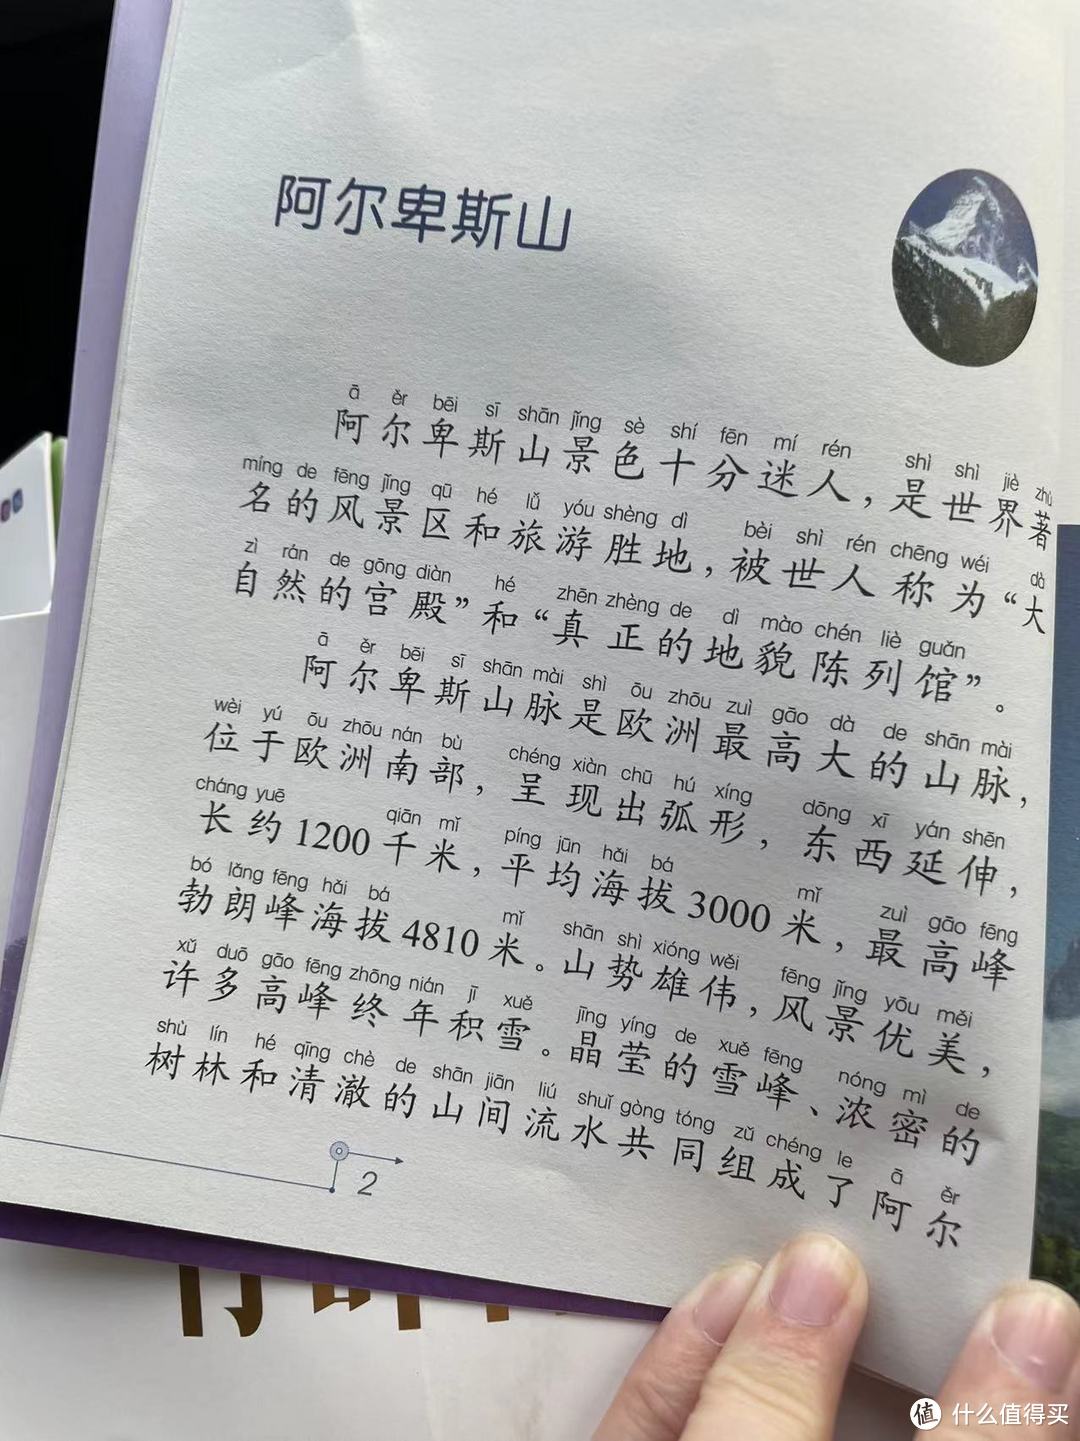 阿尔卑斯山
ā ěr bēi sī shān jǐng sè shí fēn mí rén shì shì jiè zhù
阿尔卑斯山景色十分迷人，是世界著
míng de fēng jǐng qū hé lǚ yóu shèng dì bèi shì rén chēng wéi dà
名的风景区和旅游胜地，被世人称为“大
zì rán de gōng diàn hé zhēn zhèng de dì mào chén liè guǎn
自然的宫殿”和“真正的地貌陈列馆”。
ā ěr bēi sī shān mài shì ōu zhōu zuì gāo dà de shān mài
阿尔卑斯山脉是欧洲最高大的山脉，
wèi yú ōu zhōu nán bù chéng xiàn chū hú xíng dōng xī yán shēn
位于欧洲南部，呈现出弧形，东西延伸，
cháng yuē qiān mǐ píng jūn hǎi bá mǐ zuì gāo fēng
长约1200千米，平均海拔3000米，最高峰
bó lǎng fēng hǎi bá mǐ shān shì xióng wěi fēng jǐng yōu měi
勃朗峰海拔4810米。山势雄伟，风景优美，
xǔ duō gāo fēng zhōng nián jī xuě jīng yíng de xuě fēng nóng mì de
许多高峰终年积雪。晶莹的雪峰、浓密的
shù lín hé qīng chè de shān jiān liú shuǐ gòng tóng zǔ chéng le ā ěr
树林和清澈的山间流水共同组成了阿尔
2
值 什么值得买